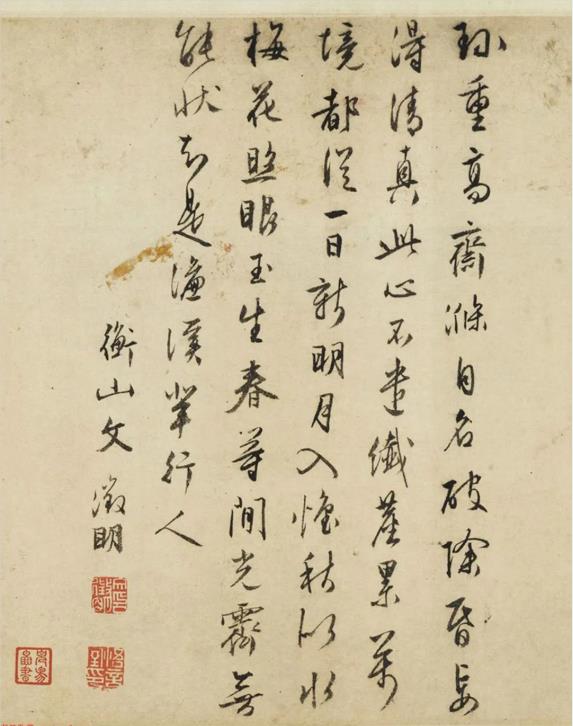 珎重高齋滌自名破除昏妄
得清真此心不遣纖塵累萬
境都從一日新明月入懷秋似水
梅花照眼玉生春等閒光霽無
能狀知是濂溪輩行人
衡山文徵明
徵明印
悟言室印